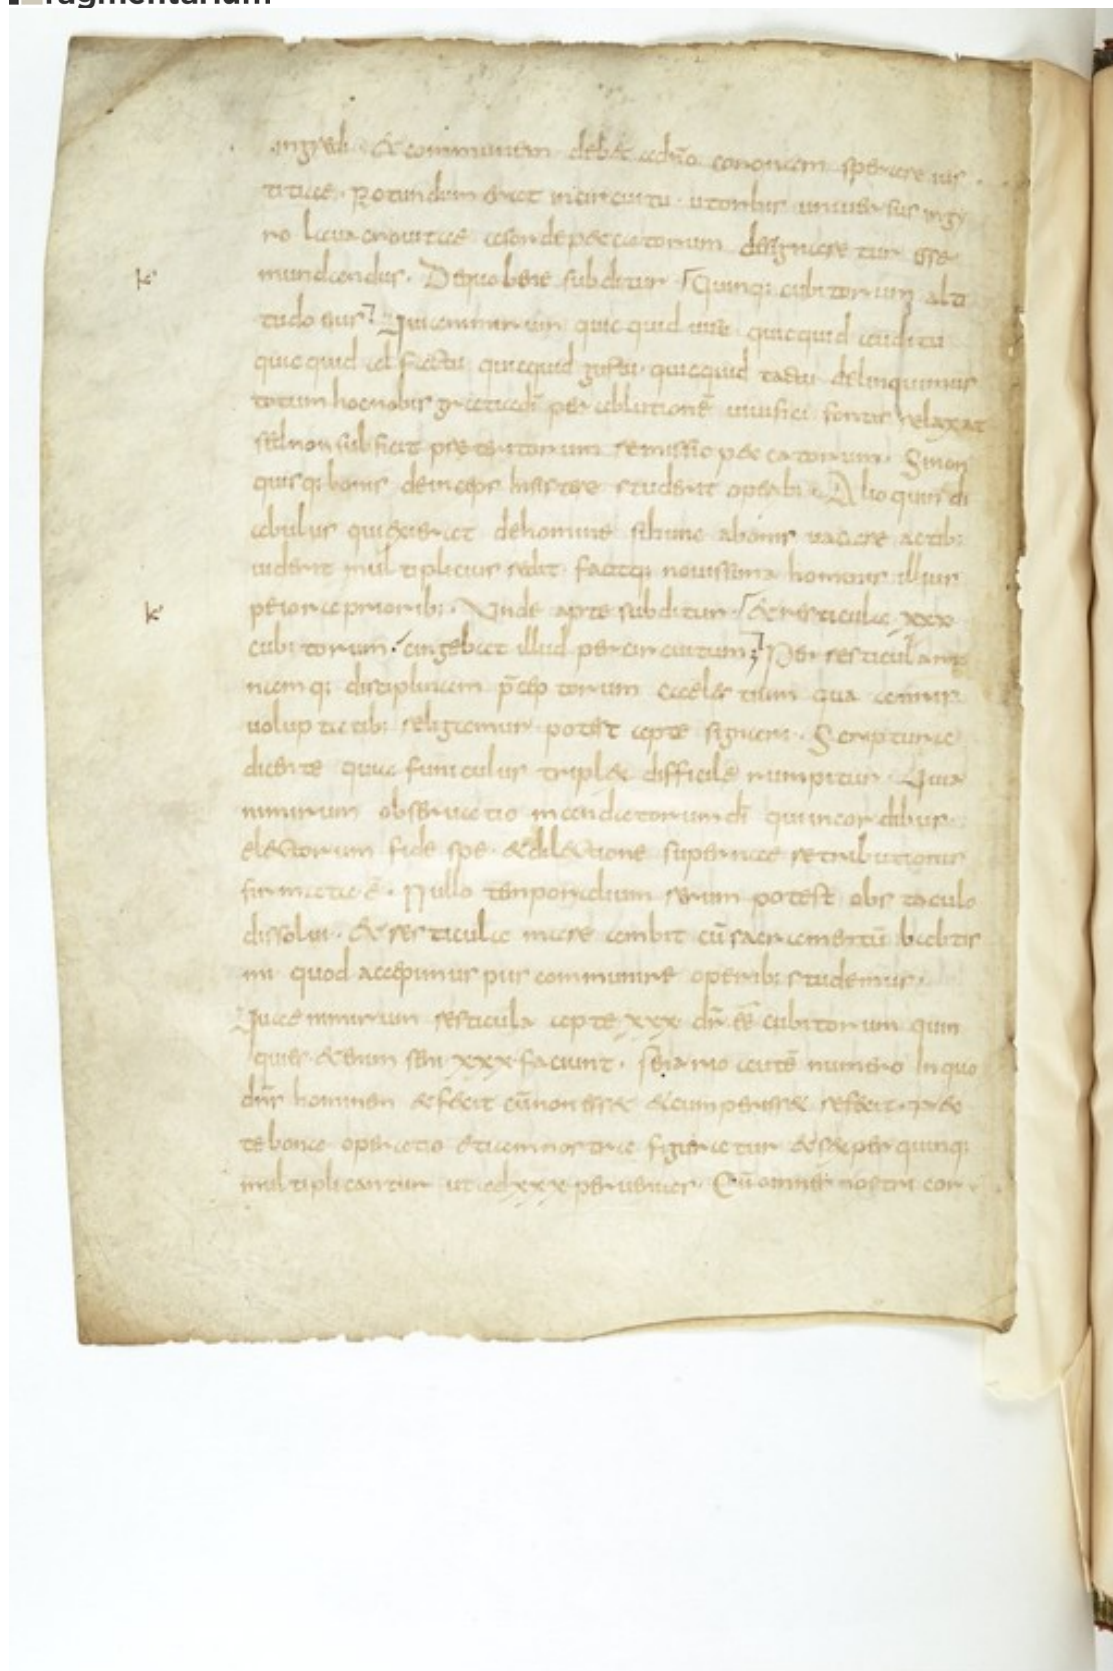 ragmentarium
ingredi. & communem deb& ad uitā coronam sperare ius
titiae. Rotundum erat in circuitu. ut orbis uniuersus in gy
ro lauandus a sorde peccatorum designaretur esse
k mundandus. De quo bene subditur Quinq; cubitorum alti
tudo eius; Quia nimirum quicquid uisu quicquid auditu
quicquid olfactu quicquid gustu quicquid tactu delinquimus
totum hoc nobis gratia dī per ablutionē uiuifici fontis relaxat
sed non sufficit praeteritorum remissio peccatorum. Si non
quisq; bonis deinceps insistere studerit operib;. Alioquin di
abulus qui exierat de homine si hunc a bonis uacare actib;
uiderit multiplicius redit facitq; nouissima hominis illius
k peiora priorib;. Unde apte subditur & resticula xxx
cubitorum cingebat illud per circuitum; Per resticulam
namq; disciplinam p̄ceptorum caelestium qua a nostris
uoluptatib; religamur potest apte signari. Scriptura
dicente quia funiculus triplex difficile rumpitur. Quia
nimirum obseruatio mandatorum dī qui in cordibus
electorum fide spe & dilectione supernae retributionis
firmata ē. Nullo temporalium rerum potest obstaculo
dissolui. & resticula mare ambit cū sacramentū babtis
mi quod accepimus piis communire operib; studemus.
Quae nimirum resticula apte xxx dr̄ ēē cubitorum quin
quies & enim seni xxx faciunt. Senario autē numero in quo
dn̄s hominem & fecit cū non ess& & cum periss& refecit.
te bona operatio etiam nostra figuratur & sex per quinq;
multiplicantur ut ad xxx perueniat. Cū omnes nostri cor